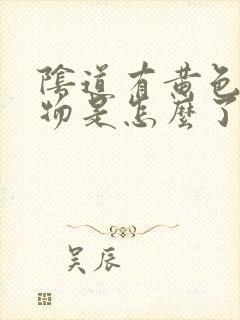 陰道有黄色
物是怎麽了
吴辰